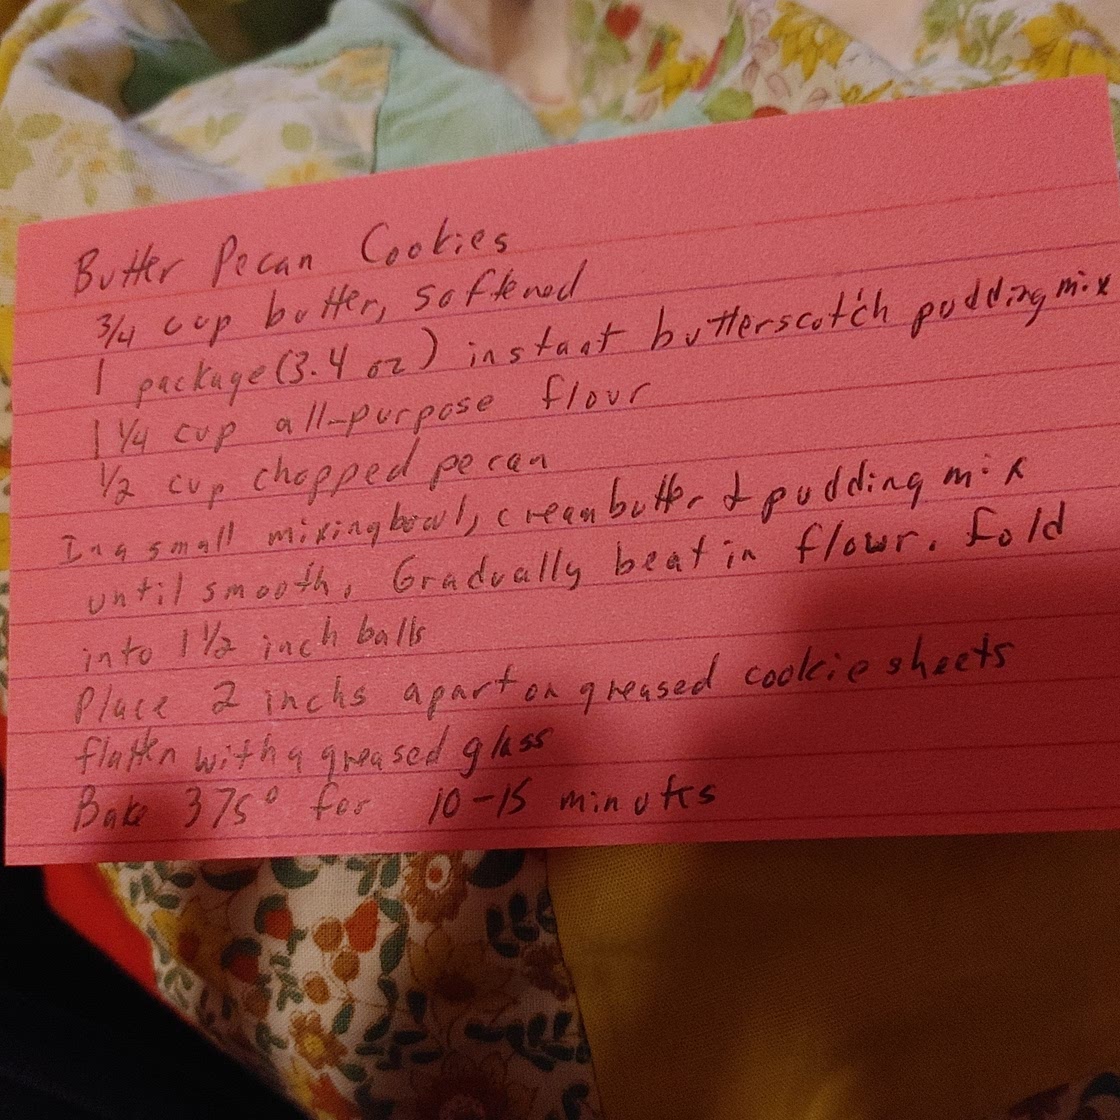 Butter Pecan Cookies
3/4 cup butter, softened
1 package (3.4 oz) instant butterscotch pudding mix
1 1/4 cup all-purpose flour
1/2 cup chopped pecan
In a small mixing bowl, cream butter & pudding mix
until smooth. Gradually beat in flour. Fold
into 1 1/2 inch balls
Place 2 inchs apart on greased cookie sheets
flatten with a greased glass
Bake 375° for 10-15 minutes